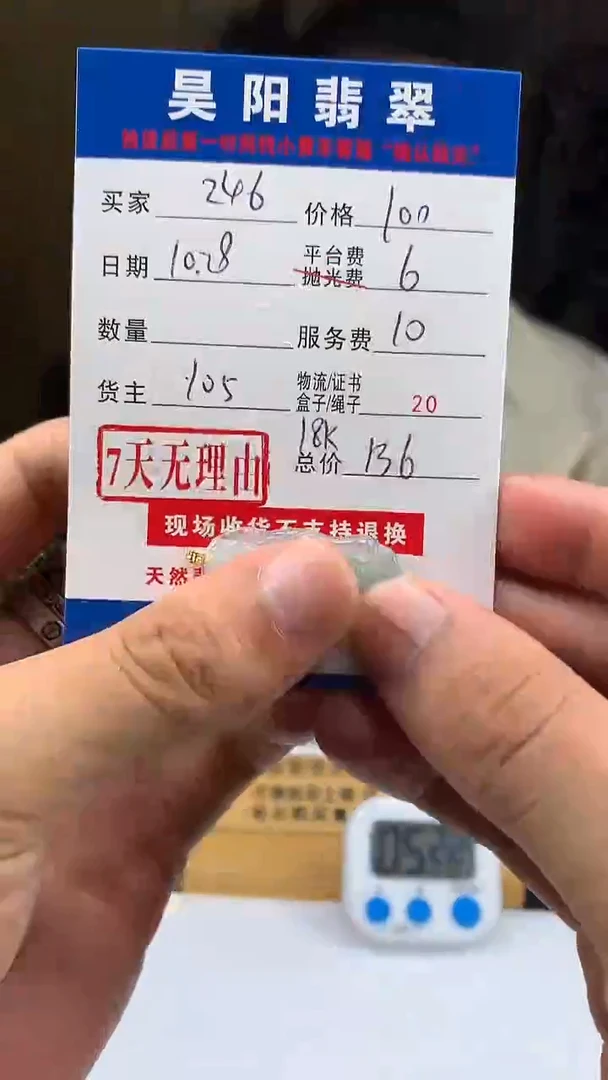 昊阳翡翠
买家 246 价格 100
日期 10.28 平台费 抛光费 6
数量 服务费 10
货主 105 物流/证书 盒子/绳子 20
18K
总价 136
7天无理由
现场收货不支持退换
天然